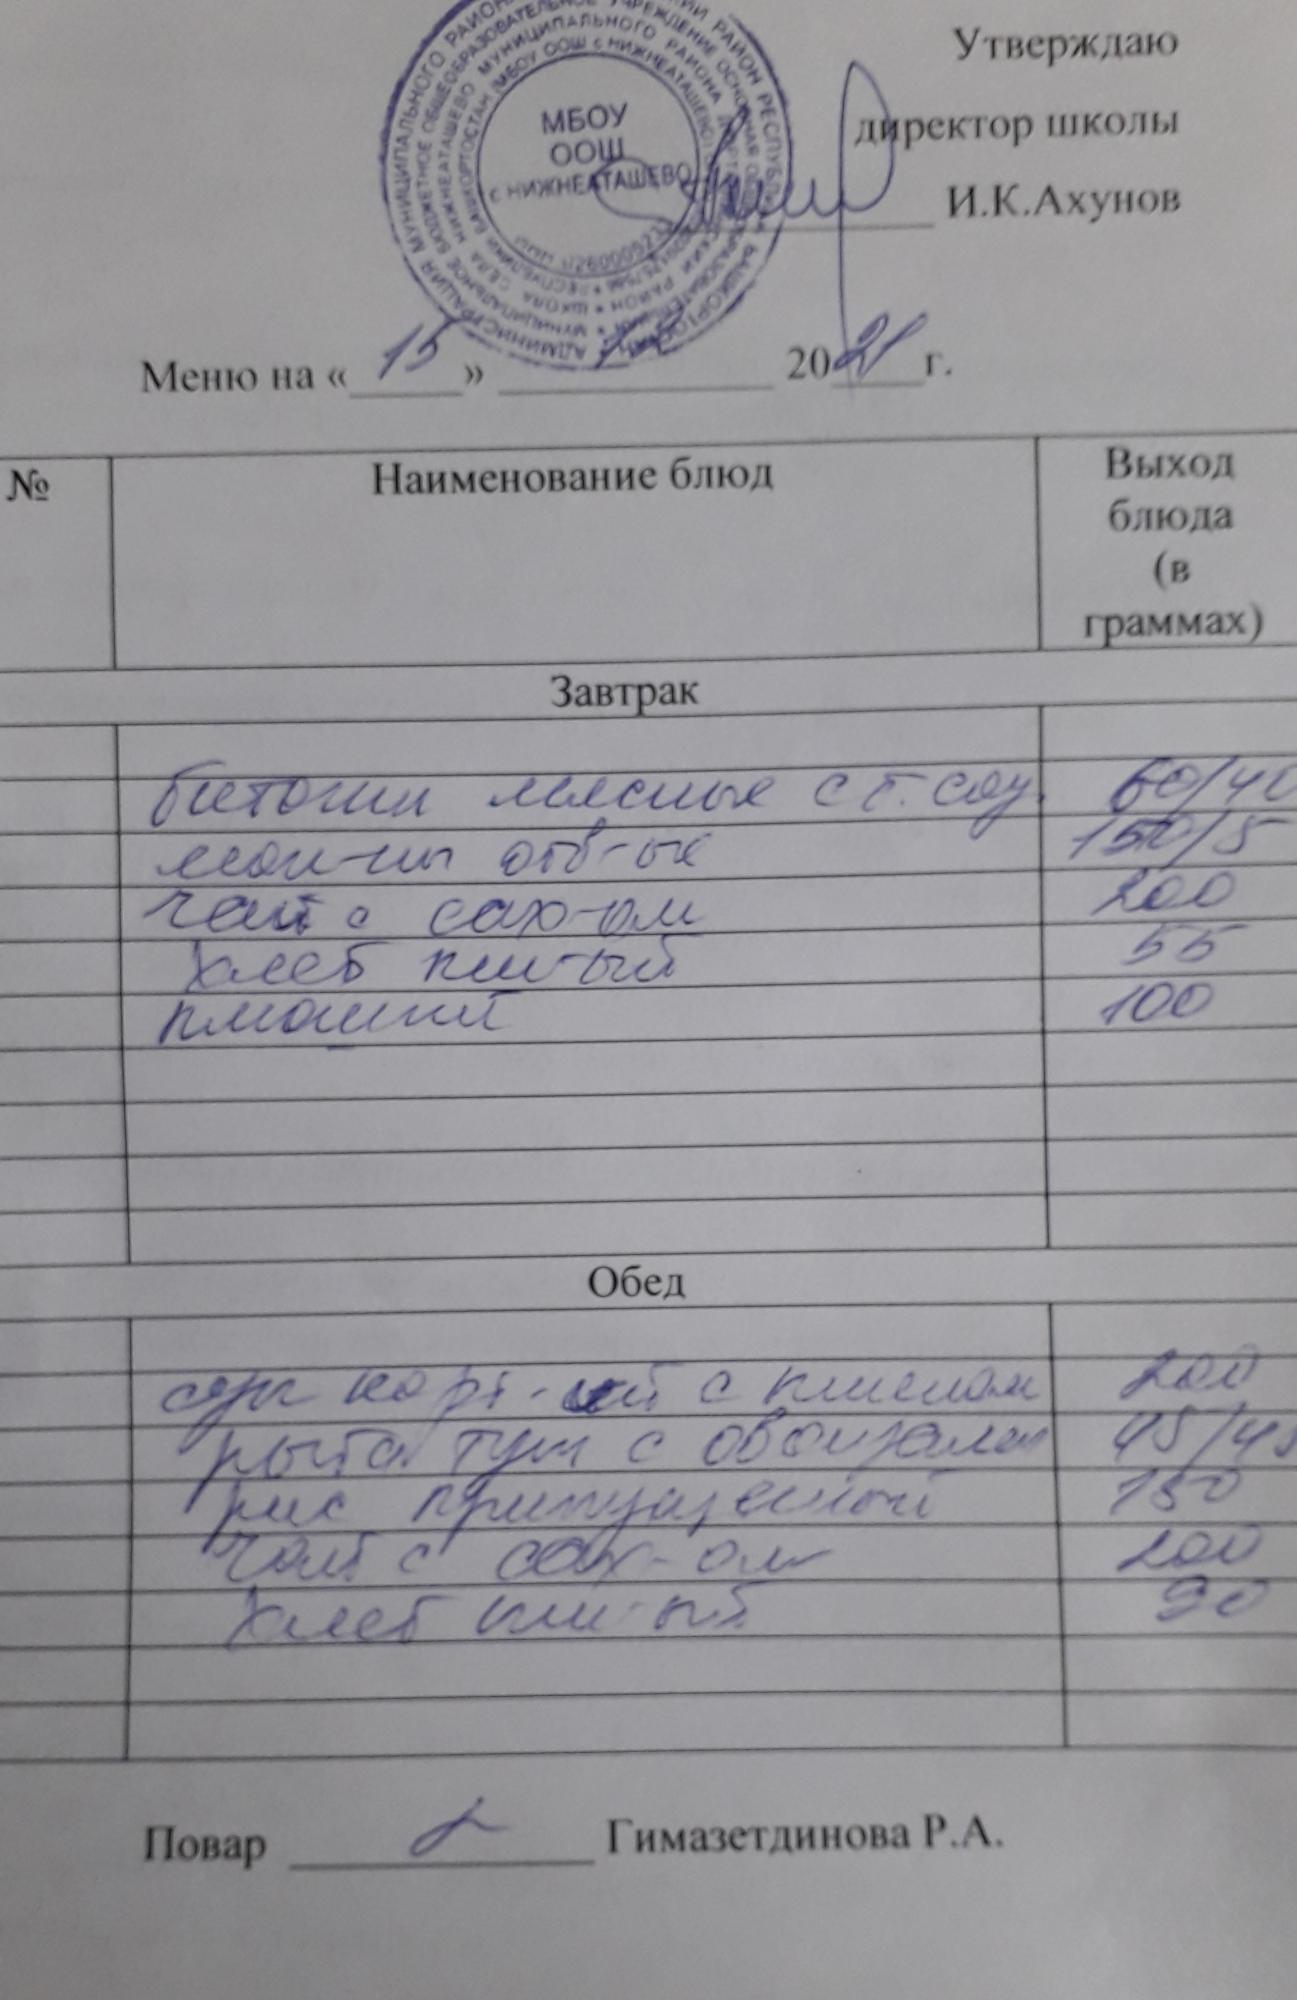 Утверждаю
директор школы
И.К.Ахунов
МБОУ
ООШ
с НИЖНЕАТАШЕВО
Меню на « 15 » 2021 г.
№ Наименование блюд Выход
блюда
(в
граммах)
Завтрак
биточки мясные с т. соу. 60/40
мак-ны отв-ые 150/5
чай с сах-ом 200
хлеб пш-ый 55
100
Обед
суп карт-ый с пшеном 200
рыба туш с овощами 45/45
рис припущенный 150
чай с сах-ом 200
хлеб пш-ый 90
Повар Гимазетдинова Р.А.